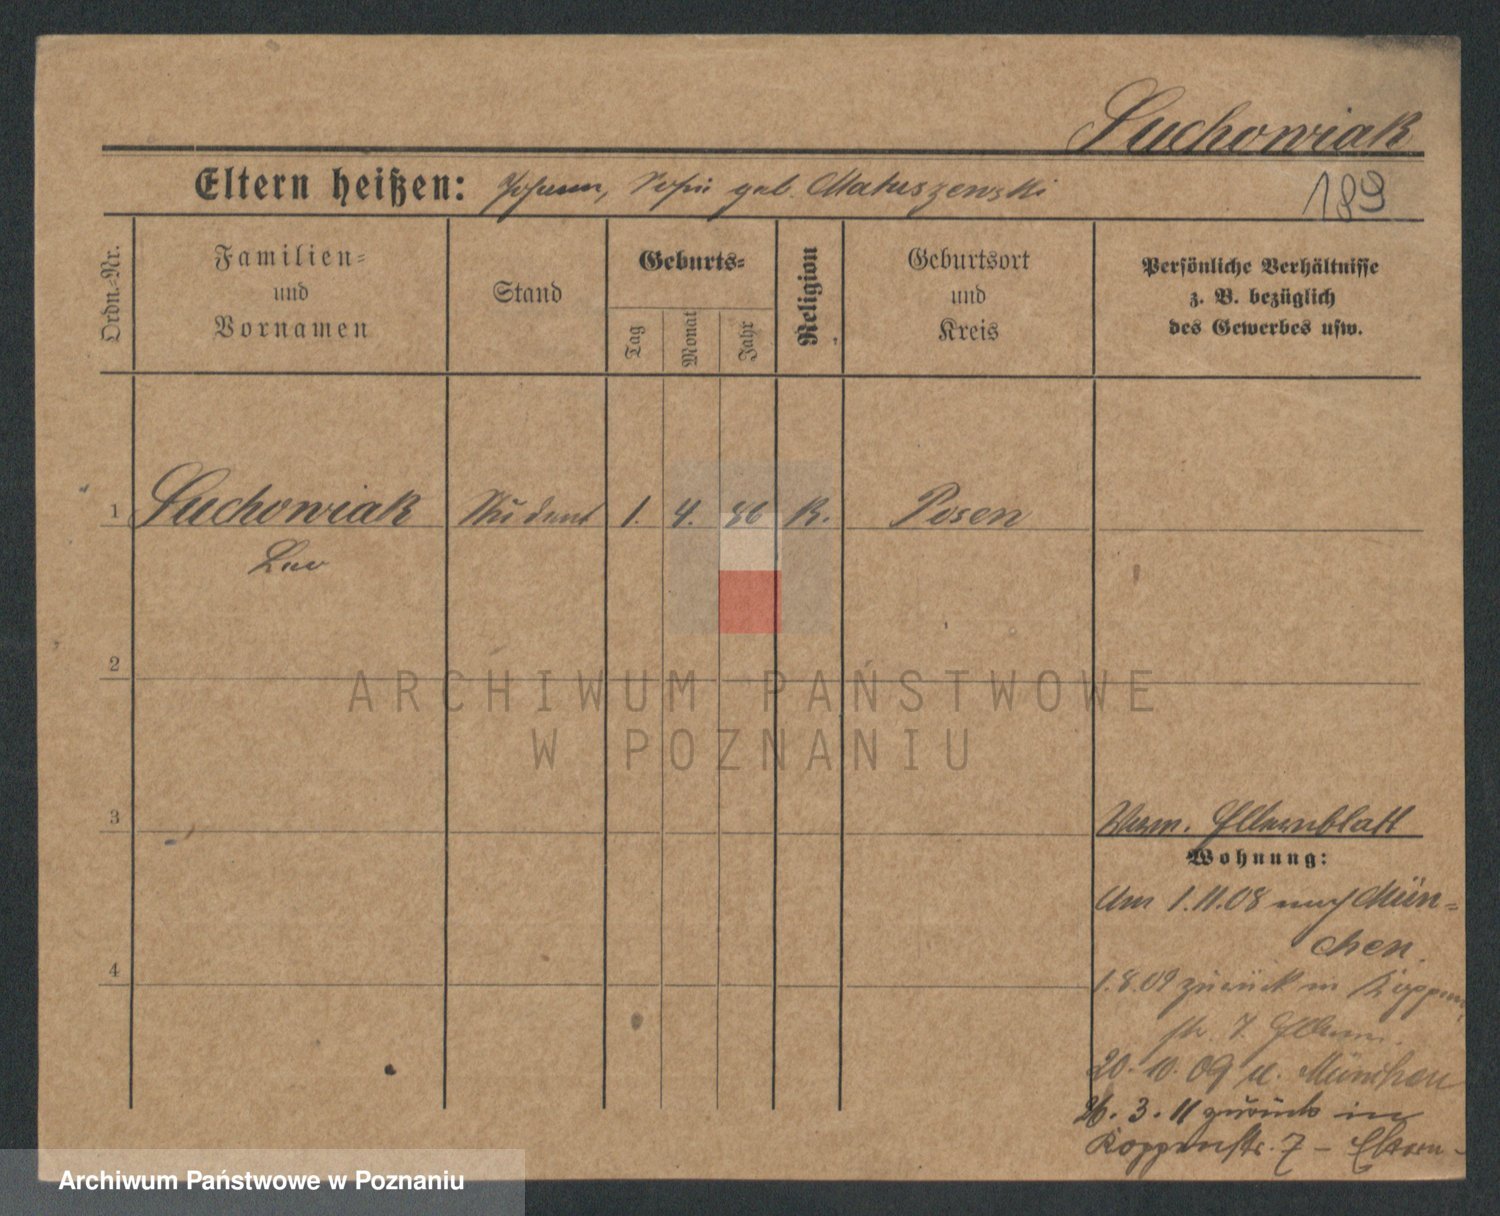 Suchowiak
Eltern heißen: Johann, Sofie geb. Matuszewski
189
Ordn.-Nr.
Familien-
und
Vornamen
Stand
Geburts-
Tag
Monat
Jahr
Religion
Geburtsort
und
Kreis
Persönliche Verhältnisse
z. B. bezüglich
des Gewerbes usw.
1 Suchowiak Student 1. 4. 86 K. Posen
Leo
2
ARCHIWUM PAŃSTWOWE
W POZNANIU
3
Elternblatt
Wohnung:
Am 1.11.08 nach Mün-
chen.
4
1.8.09 zurück in Koppen
str. 7. Eltern.
20.10.09 n. München
26.3.11 zurück in
Koppenstr. 7 – Eltern-
Archiwum Państwowe w Poznaniu